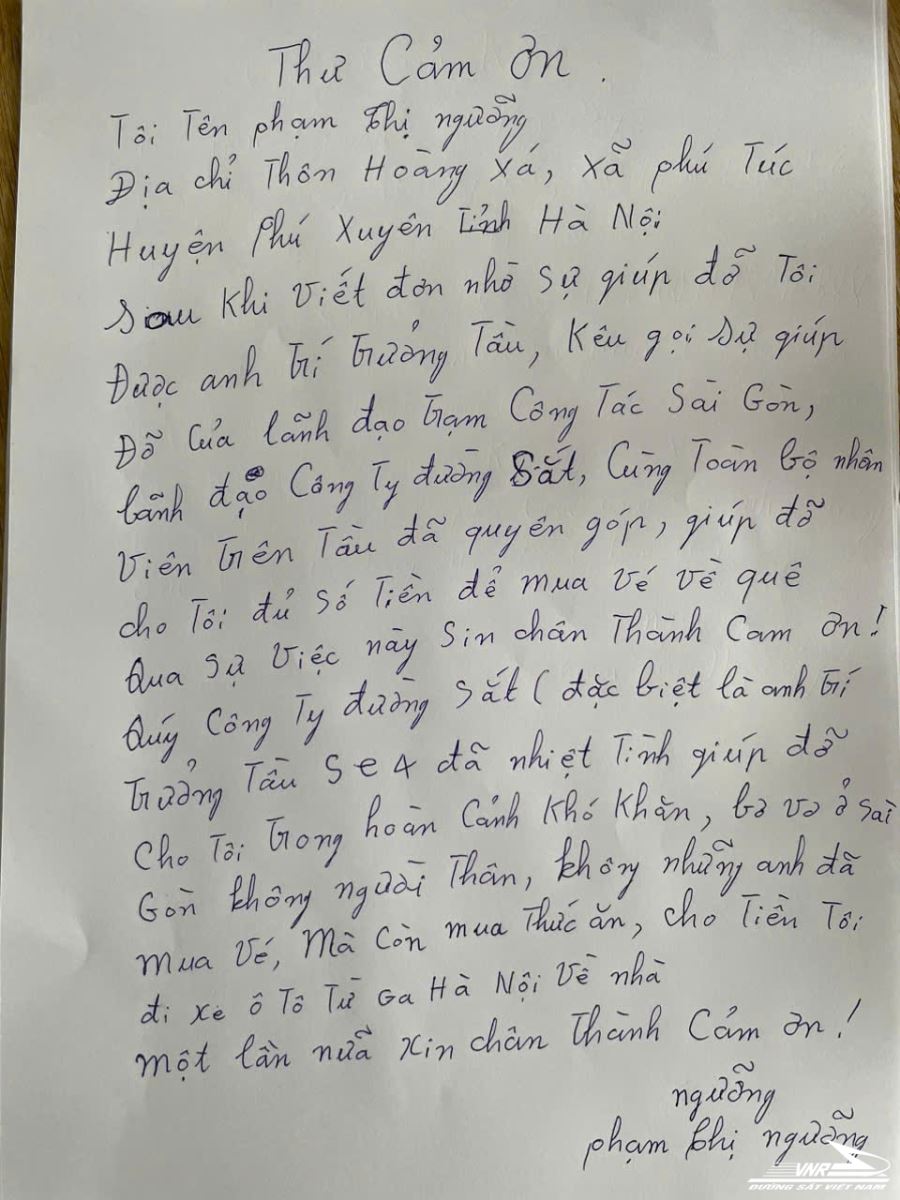 Thư Cảm ơn.
Tôi Tên phạm thị ngưỡng
Địa chỉ Thôn Hoàng Xá, Xã phú Túc
Huyện Phú Xuyên tỉnh Hà Nội
Sau Khi Viết đơn nhờ Sự giúp đỡ Tôi
Được anh trí trưởng Tàu, Kêu gọi Sự giúp
Đỡ Của lãnh đạo trạm Công Tác Sài Gòn,
lãnh đạo Công Ty đường Sắt, Cùng Toàn bộ nhân
Viên trên Tầu đã quyên góp, giúp đỡ
cho Tôi đủ Số Tiền để mua vé về quê
Qua Sự Việc này Sin chân Thành Cam ơn!
Qúy Công Ty đường Sắt ( đặc biệt là anh trí
trưởng Tầu Se4 đã nhiệt Tình giúp đỡ
Cho Tôi trong hoàn Cảnh Khó Khăn, bơ vơ ở Sài
Gòn không người Thân, không những anh đã
mua Vé, Mà Còn mua Thức ăn, Cho Tiền Tôi
đi xe ô Tô Từ Ga Hà Nội Về nhà
Một lần nữa xin chân Thành Cảm ơn!
ngưỡng
phạm thị ngưỡng
VNR
ĐƯỜNG SẮT VIỆT NAM